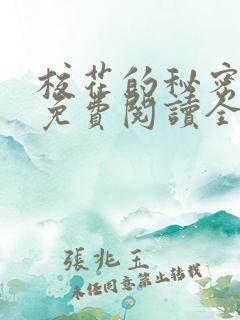 校花的秘密
免費閱讀全
張兆玉
未经同意禁止转载